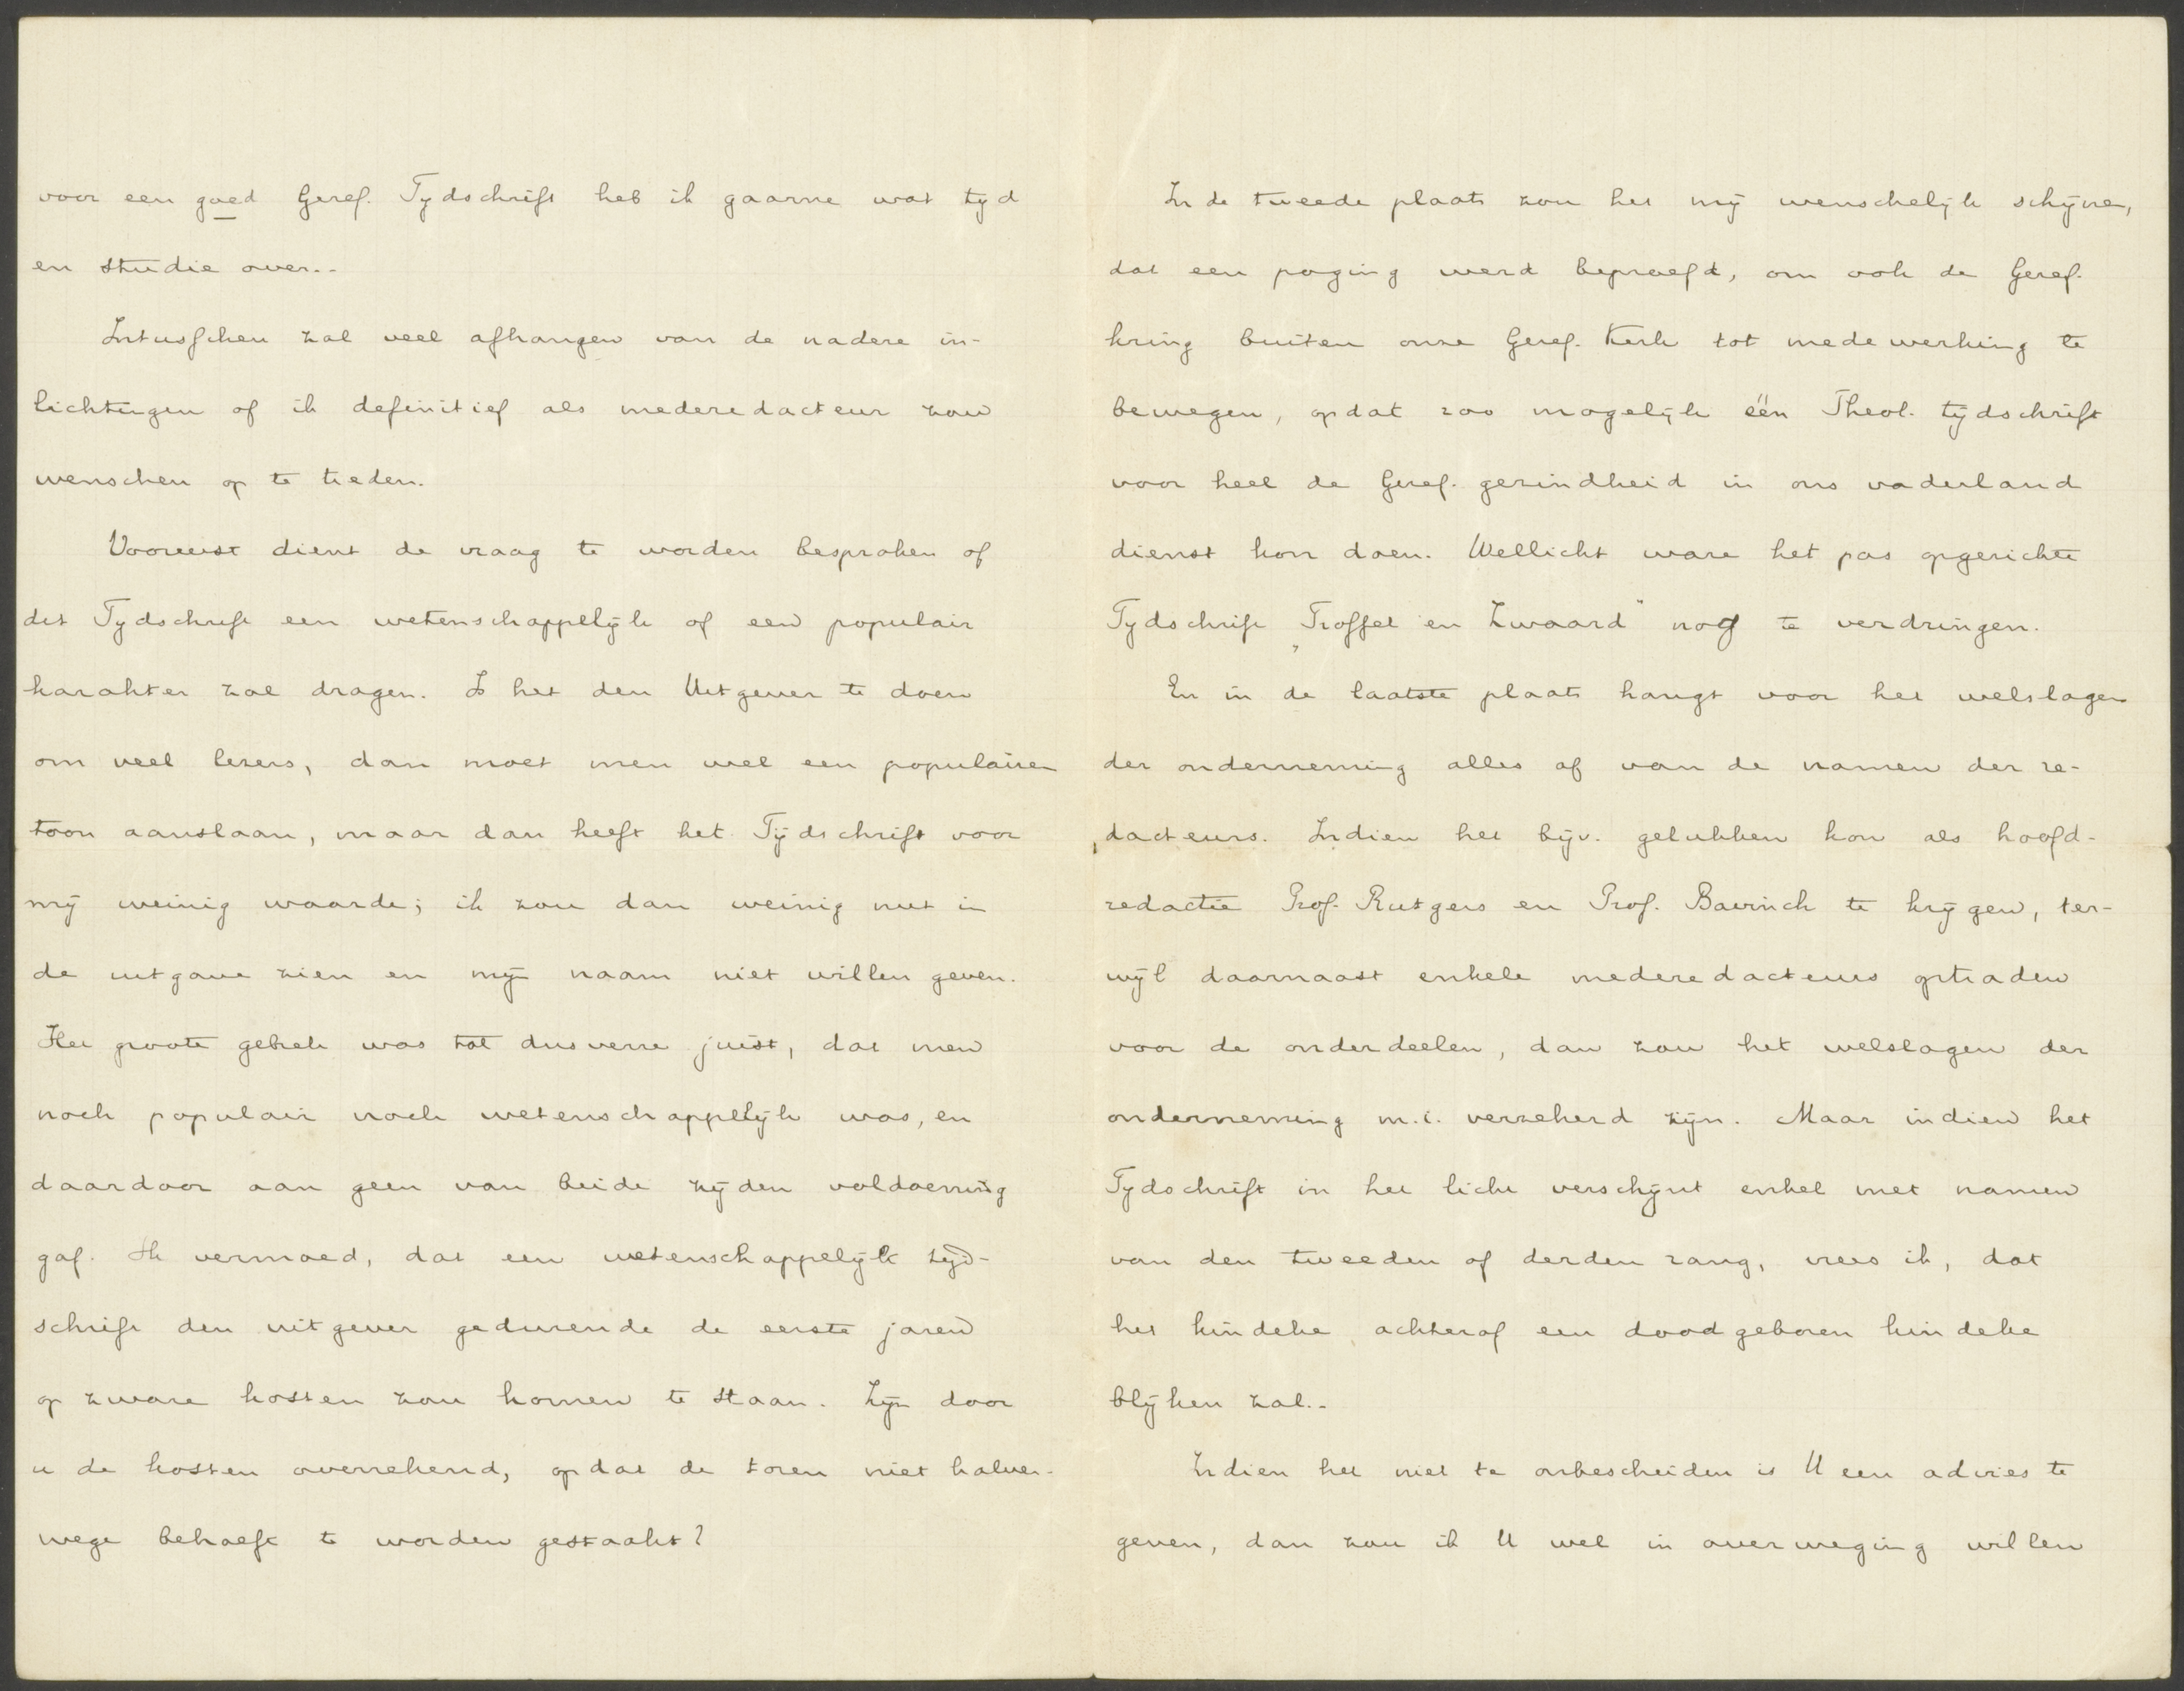 voor een goed Geref. Tijdschrift heb ik gaarne wat tijd
en studie over..
Intusschen zal veel afhangen van de nadere in-
lichtingen of ik definitief als mederedacteur zou
wenschen op te treden.
Vooreerst dient de vraag te worden besproken of
dit Tijdschrift een wetenschappelijk of een populair
karakter zal dragen. Is het den Uitgever te doen
om veel lezers, dan moet men wel een populairen
toon aanslaan, maar dan heeft het Tijdschrift voor
mij weinig waarde; ik zou dan weinig nut in
de uitgave zien en mijn naam niet willen geven.
Het groote gebrek was tot dusverre juist, dat men
noch populair noch wetenschappelijk was, en
daardoor aan geen van beide zijden voldoening
gaf. Ik vermoed, dat een wetenschappelijk tijd-
schrift den uitgever gedurende de eerste jaren
op zware kosten zou komen te staan. Zijn door
u de kosten overrekend, opdat de toren niet halver-
wege behoeft te worden gestaakt?
In de tweede plaats zou het mij wenschelijk schijnen,
dat een poging werd beproefd, om ook de Geref.
kring buiten onze Geref. Kerk tot medewerking te
bewegen, opdat zoo mogelijk één Theol. tijdschrift
voor heel de Geref. gezindheid in ons vaderland
dienst kon doen. Wellicht ware het pas opgerichte
Tijdschrift „Troffel en Zwaard" nog te verdringen.
En in de laatste plaats hangt voor het welslagen
der onderneming alles af van de namen der re-
dacteurs. Indien het bijv. gelukken kon als hoofd-
redactie Prof. Rutgers en Prof. Bavinck te krijgen, ter-
wijl daarnaast enkele mederedacteurs optraden
voor de onderdeelen, dan zou het welslagen der
onderneming m.i. verzekerd zijn. Maar indien het
Tijdschrift in het licht verschijnt enkel met namen
van den tweeden of derden rang, vrees ik, dat
het kindeke achteraf een doodgeboren kindeke
blijken zal..
Indien het niet te onbescheiden is U een advies te
geven, dan zou ik U wel in overweging willen